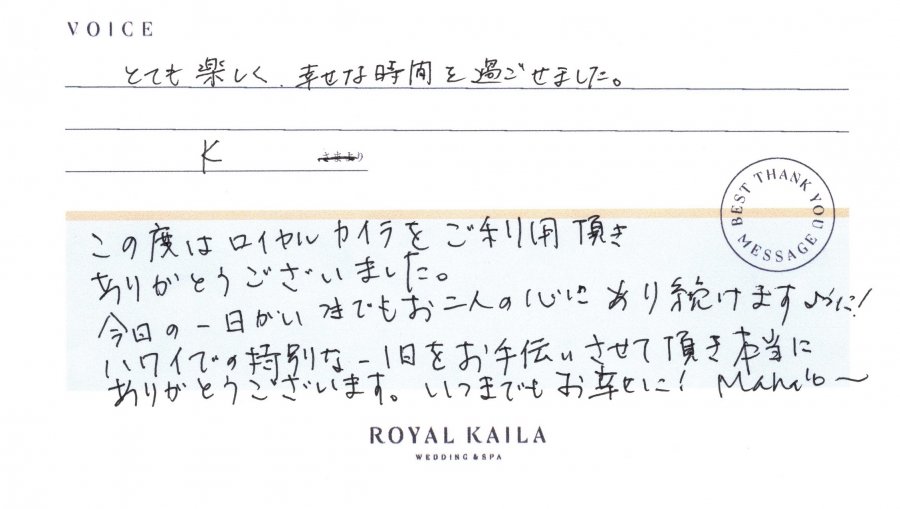 VOICE
とても楽しく、幸せな時間を過ごせました。
K さまより
BEST THANK YOU MESSAGE
この度はロイヤルカイラをご利用頂き
ありがとうございました。
今日の一日がいつまでもお二人の心にあり続けますように!
ハワイでの特別な一日をお手伝いさせて頂き本当に
ありがとうございます。いつまでもお幸せに! Mahalo〜
ROYAL KAILA
WEDDING & SPA